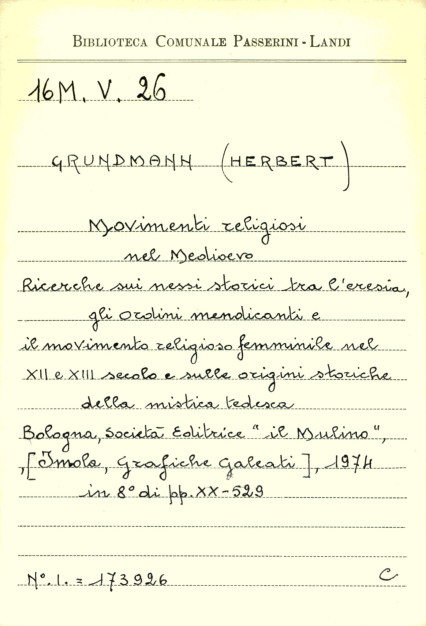 BIBLIOTECA COMUNALE PASSERINI - LANDI
16M. V. 26
GRUNDMANN (HERBERT)
Movimenti religiosi
nel Medioevo
Ricerche sui nessi storici tra l'eresia,
gli Ordini mendicanti e
il movimento religioso femminile nel
XII e XIII secolo e sulle origini storiche
della mistica tedesca
Bologna, Società Editrice "il Mulino",
,[Imola, Grafiche Galeati], 1974
in 8° di pp. XX-529
N°. I. = 173926 C